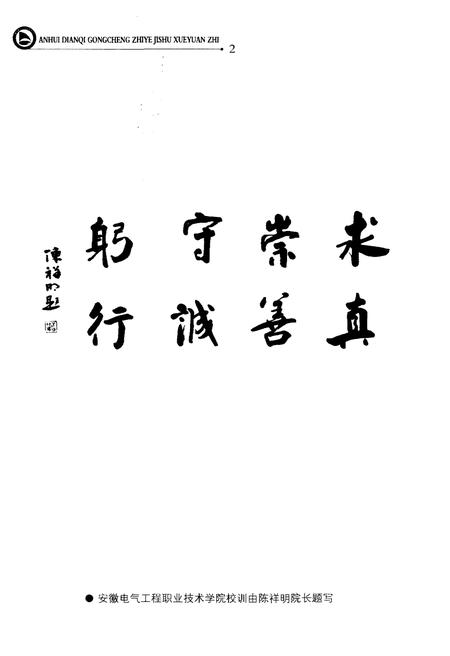 ANHUI DIANQI GONGCHENG ZHIYE JISHU XUEYUAN ZHI
2
求真
崇善
守诚
躬行
陈祥明题
● 安徽电气工程职业技术学院校训由陈祥明院长题写